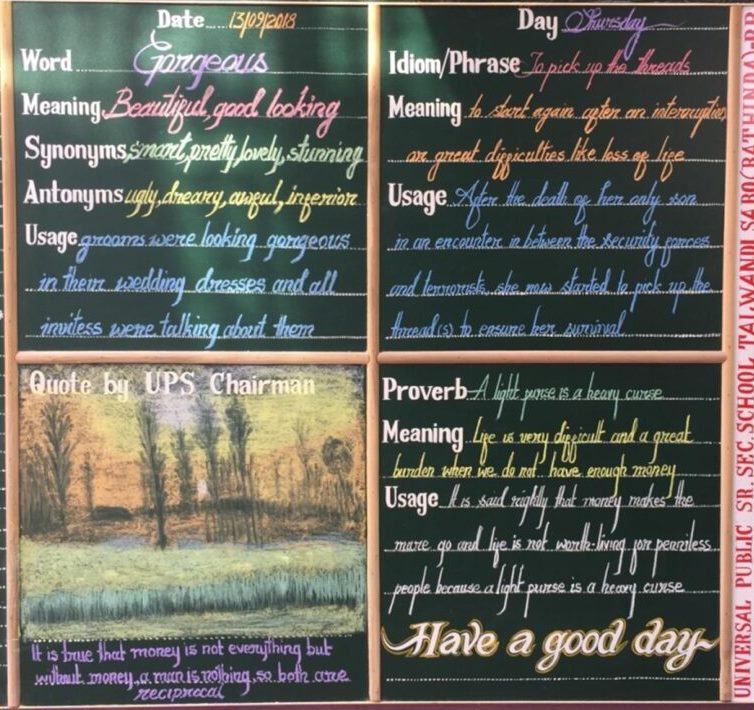 Date 13/09/2018
Word Gorgeous
Meaning Beautiful, good looking
Synonyms smart, pretty, lovely, stunning
Antonyms ugly, dreary, awful, inferior
Usage grooms were looking gorgeous
in their wedding dresses and all
invitess were talking about them
Day Thursday
Idiom/Phrase To pick up the threads
Meaning to start again after an interruption
or great difficulties like loss of life
Usage After the death of her only son
in an encounter in between the security forces
and terrorists, she now started to pick up the
thread(s) to ensure her survival
Quote by UPS Chairman
It is true that money is not everything but
without money, a man is nothing, so both are
reciprocal
Proverb A light purse is a heavy curse
Meaning Life is very difficult and a great
burden when we do not have enough money
Usage It is said rightly that money makes the
mare go and life is not worth-living for penniless
people because a light purse is a heavy curse
Have a good day
UNIVERSAL PUBLIC SR. SEC. SCHOOL TALWANDI SABO